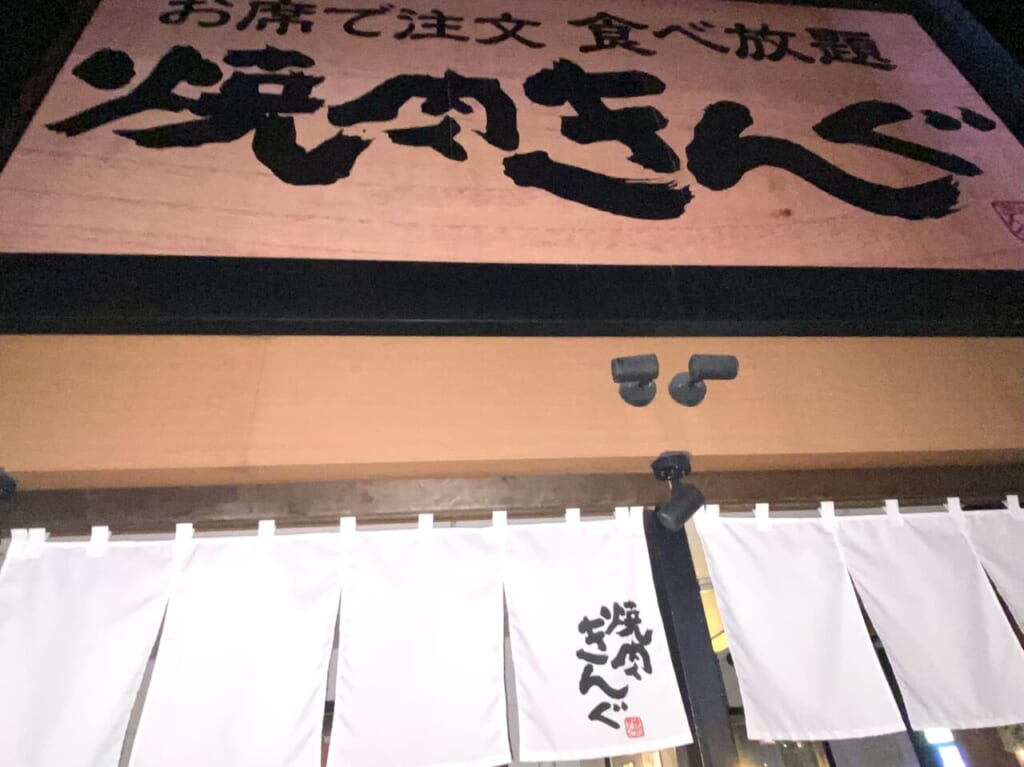 お席で注文 食べ放題
焼肉きんぐ
焼肉
きんぐ